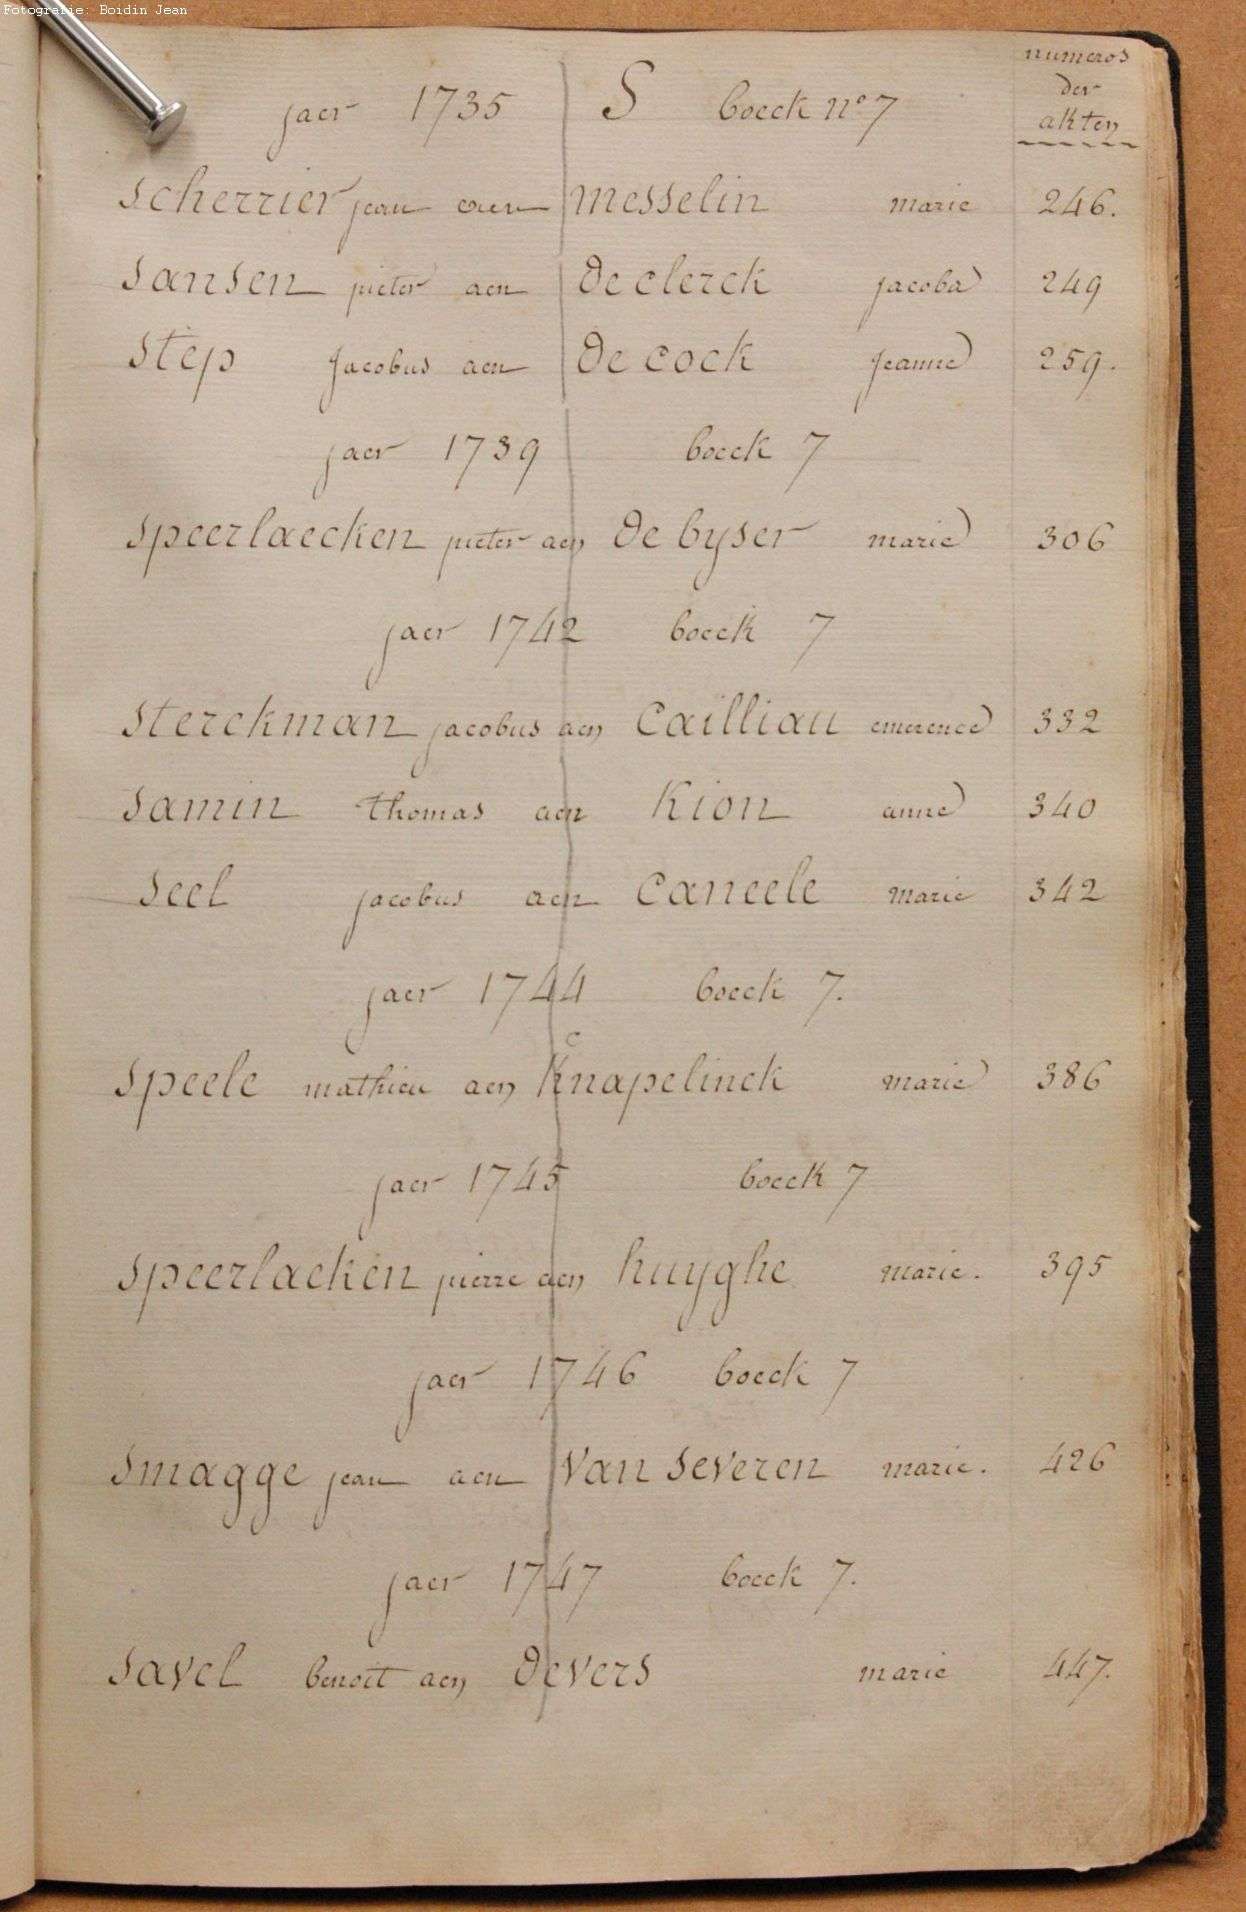 Fotografie: Boidin Jean
numeros
der
akten
jaer 1735 S boeck n° 7
scherrier jean aen messelin marie 246.
sansen pieter aen de clerck jacoba 249
step jacobus aen de cock jeanne 259.
jaer 1739 boeck 7
speerlaecken pieter aen de byser marie 306
jaer 1742 boeck 7
sterckman jacobus aen cailliau emerence 332
samin thomas aen kion anne 340
seel jacobus aen caneele marie 342
jaer 1744 boeck 7.
c
speele mathieu aen knapelinck marie 386
jaer 1745 boeck 7
speerlaeken pierre aen huyghe marie. 395
jaer 1746 boeck 7
smagge jean aen van severen marie. 426
jaer 1747 boeck 7.
savel benoit aen devers marie 447.